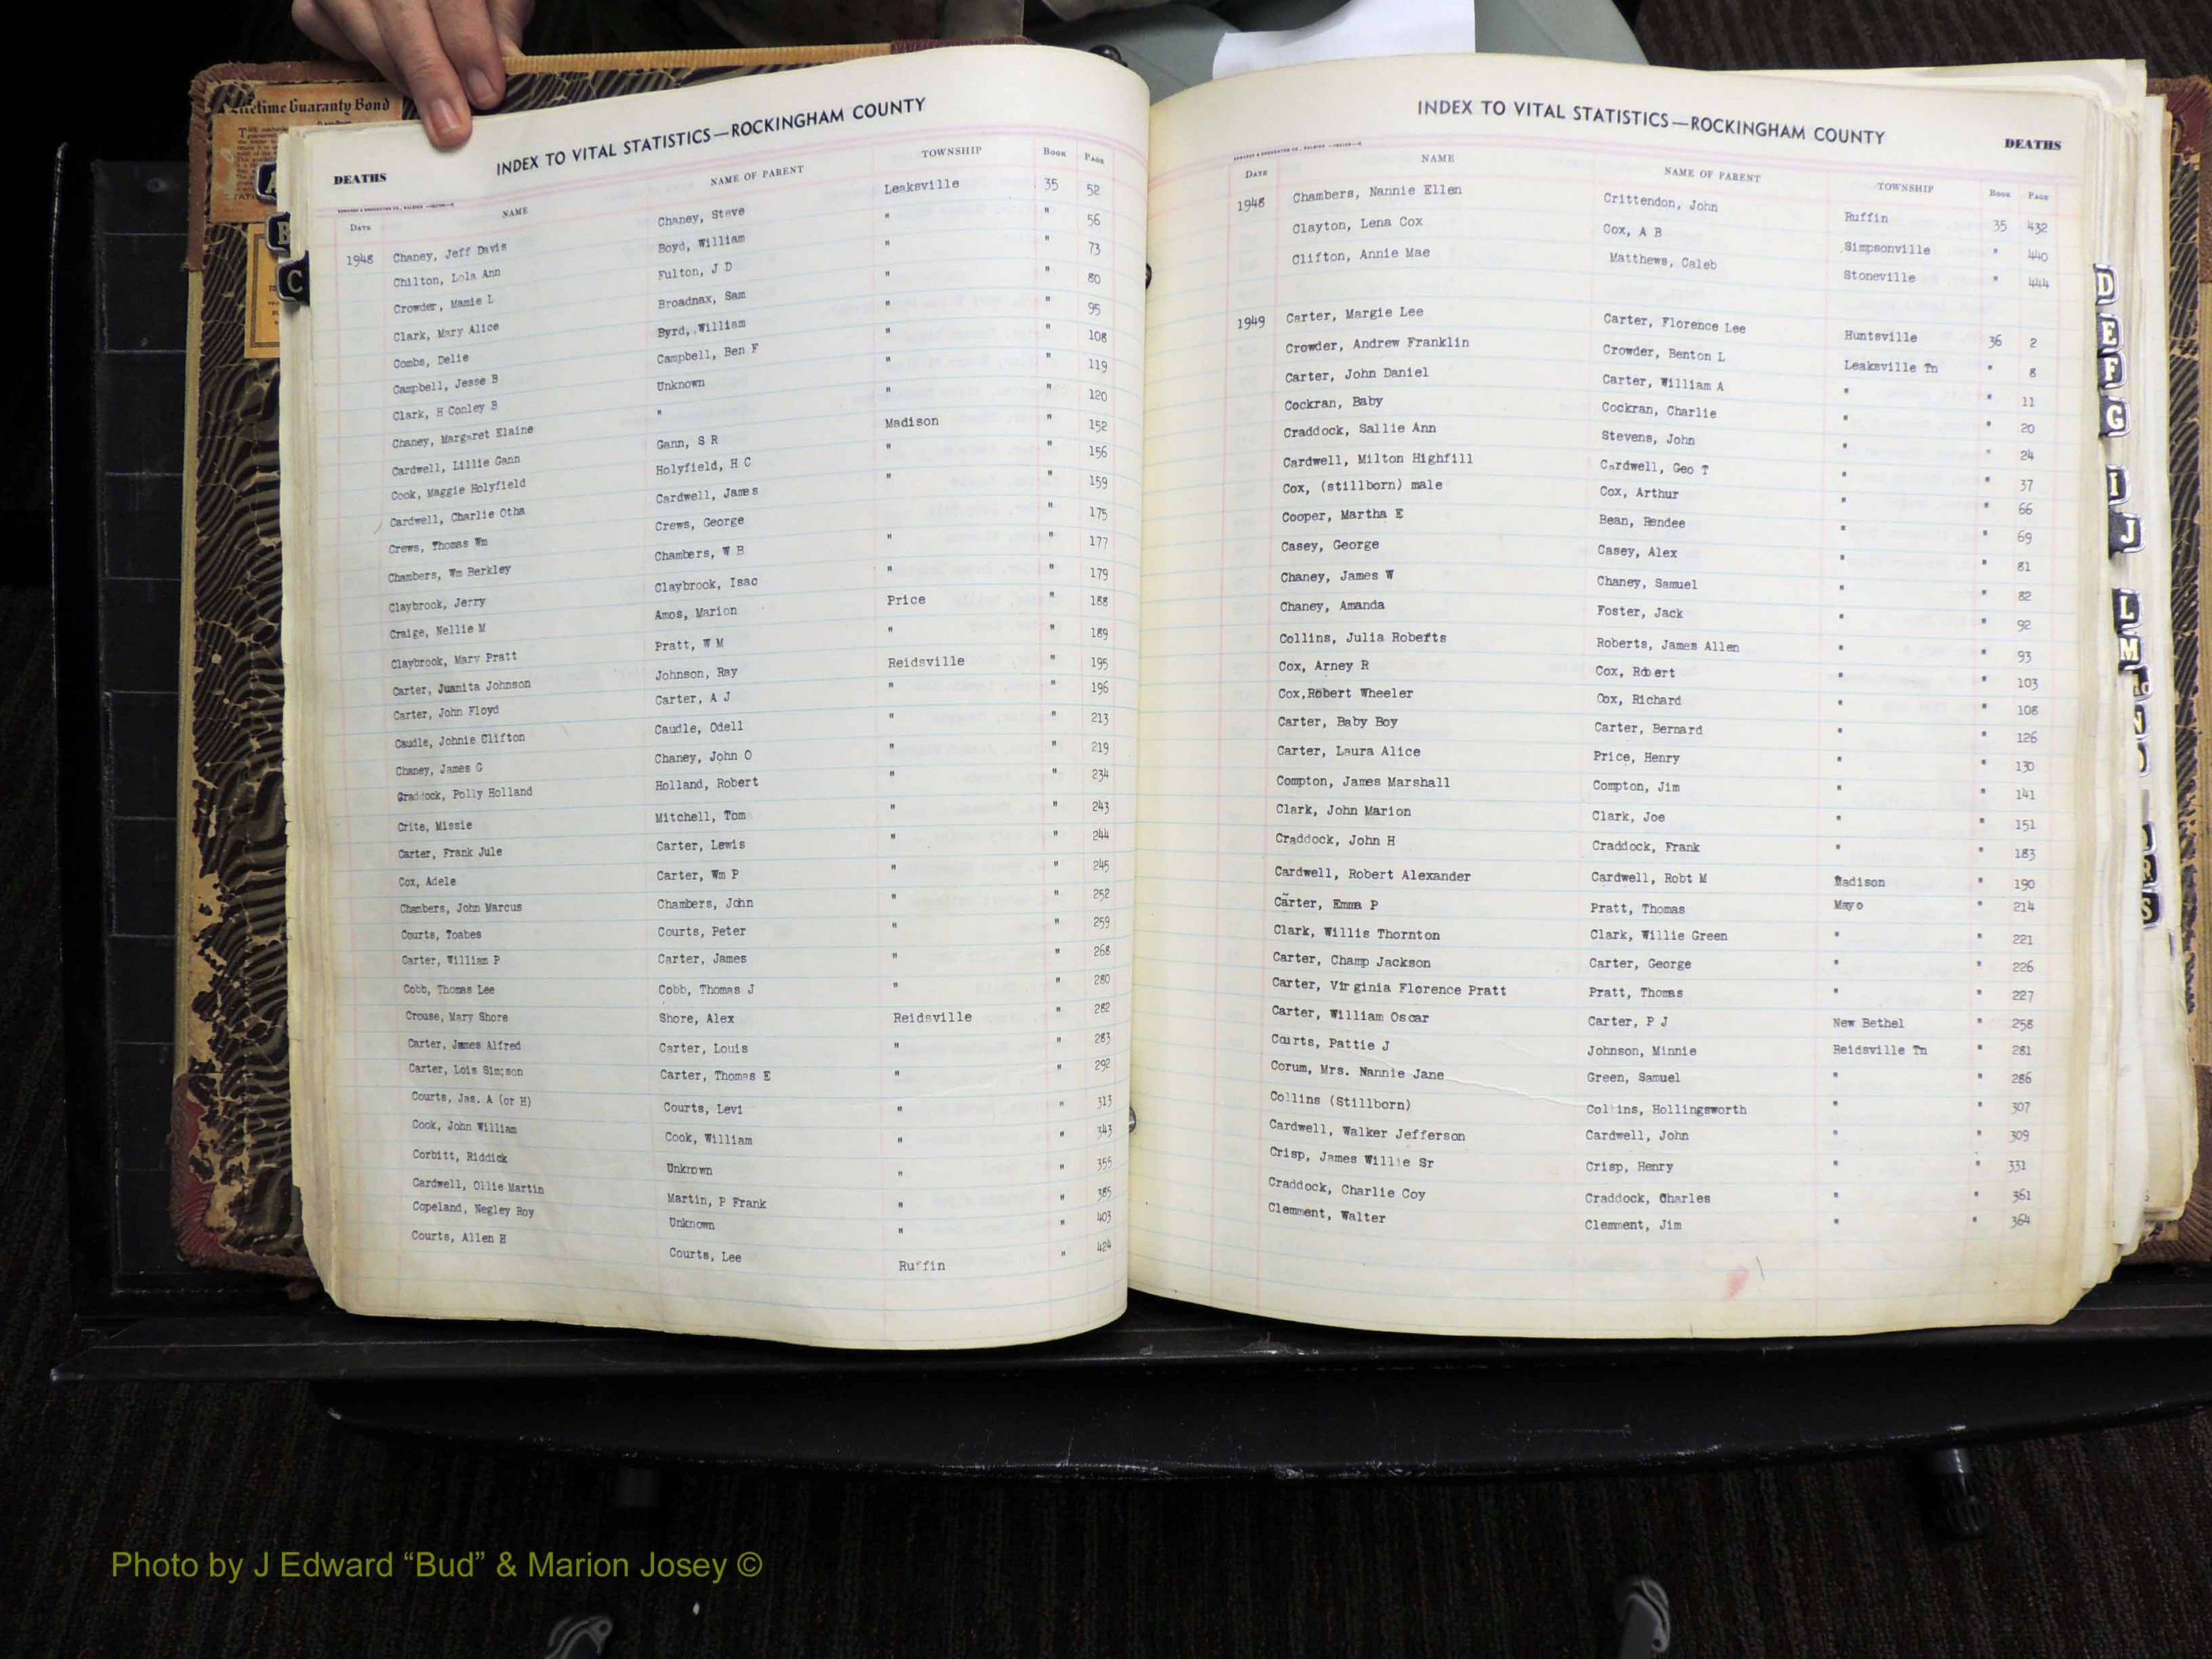 Lifetime Guaranty Bond
INDEX TO VITAL STATISTICS—ROCKINGHAM COUNTY
DEATHS
DATE NAME NAME OF PARENT TOWNSHIP BOOK PAGE
1948 Chaney, Jeff Davis Chaney, Steve Leaksville 35 52
Chilton, Lola Ann Boyd, William " " 56
Crowder, Mamie L Fulton, J D " " 73
Clark, Mary Alice Broadnax, Sam " " 80
Combs, Delie Byrd, William " " 95
Campbell, Jesse B Campbell, Ben F " " 108
Clark, H Conley B Unknown " " 119
Chaney, Margaret Elaine " " " 120
Cardwell, Lillie Gann Gann, S R Madison " 152
Cook, Maggie Holyfield Holyfield, H C " " 156
Cardwell, Charlie Otha Cardwell, James " " 159
Crews, Thomas Wm Crews, George " 175
Chambers, Wm Berkley Chambers, W B " " 177
Claybrook, Jerry Claybrook, Isac " " 179
Craige, Nellie M Amos, Marion Price " 188
Claybrook, Mary Pratt Pratt, W M " " 189
Carter, Juanita Johnson Johnson, Ray Reidsville " 195
Carter, John Floyd Carter, A J " " 196
Caudle, Johnie Clifton Caudle, Odell " " 213
Chaney, James G Chaney, John O " " 219
Craddock, Polly Holland Holland, Robert " " 234
Crite, Missie Mitchell, Tom " " 243
Carter, Frank Jule Carter, Lewis " " 244
Cox, Adele Carter, Wm P " " 245
Chambers, John Marcus Chambers, John " " 252
Courts, Toabes Courts, Peter " " 259
Carter, William P Carter, James " " 268
Cobb, Thomas Lee Cobb, Thomas J " " 280
Crouse, Mary Shore Shore, Alex Reidsville " 282
Carter, James Alfred Carter, Louis " " 283
Carter, Lois Simpson Carter, Thomas E " " 292
Courts, Jas. A (or H) Courts, Levi " " 313
Cook, John William Cook, William " " 343
Corbitt, Riddick Unknown " " 355
Cardwell, Ollie Martin Martin, P Frank " " 385
Copeland, Negley Roy Unknown " " 403
Courts, Allen H Courts, Lee Ruffin " 424
INDEX TO VITAL STATISTICS—ROCKINGHAM COUNTY
DEATHS
DATE NAME NAME OF PARENT TOWNSHIP BOOK PAGE
1948 Chambers, Nannie Ellen Crittendon, John Ruffin 35 432
Clayton, Lena Cox Cox, A B Simpsonville " 440
Clifton, Annie Mae Matthews, Caleb Stoneville " 444
1949 Carter, Margie Lee Carter, Florence Lee Huntsville 36 2
Crowder, Andrew Franklin Crowder, Benton L Leaksville Tn " 8
Carter, John Daniel Carter, William A " " 11
Cockran, Baby Cockran, Charlie " " 20
Craddock, Sallie Ann Stevens, John " " 24
Cardwell, Milton Highfill Cardwell, Geo T " " 37
Cox, (stillborn) male Cox, Arthur " " 66
Cooper, Martha E Bean, Rendee " " 69
Casey, George Casey, Alex " " 81
Chaney, James W Chaney, Samuel " " 82
Chaney, Amanda Foster, Jack " " 92
Collins, Julia Roberts Roberts, James Allen " " 93
Cox, Arney R Cox, Robert " " 103
Cox,Robert Wheeler Cox, Richard " " 108
Carter, Baby Boy Carter, Bernard " " 126
Carter, Laura Alice Price, Henry " " 130
Compton, James Marshall Compton, Jim " " 141
Clark, John Marion Clark, Joe " " 151
Craddock, John H Craddock, Frank " " 183
Cardwell, Robert Alexander Cardwell, Robt M Madison " 190
Carter, Emma P Pratt, Thomas Mayo " 214
Clark, Willis Thornton Clark, Willie Green " " 221
Carter, Champ Jackson Carter, George " " 226
Carter, Virginia Florence Pratt Pratt, Thomas " " 227
Carter, William Oscar Carter, P J New Bethel " 258
Courts, Pattie J Johnson, Minnie Reidsville Tn " 281
Corum, Mrs. Nannie Jane Green, Samuel " " 286
Collins (Stillborn) Collins, Hollingsworth " " 307
Cardwell, Walker Jefferson Cardwell, John " " 309
Crisp, James Willie Sr Crisp, Henry " " 331
Craddock, Charlie Coy Craddock, Charles " " 361
Clemment, Walter Clemment, Jim " " 364
B
C
D
E
F
G
I
J
L
M
N
R
S
Photo by J Edward “Bud” & Marion Josey ©